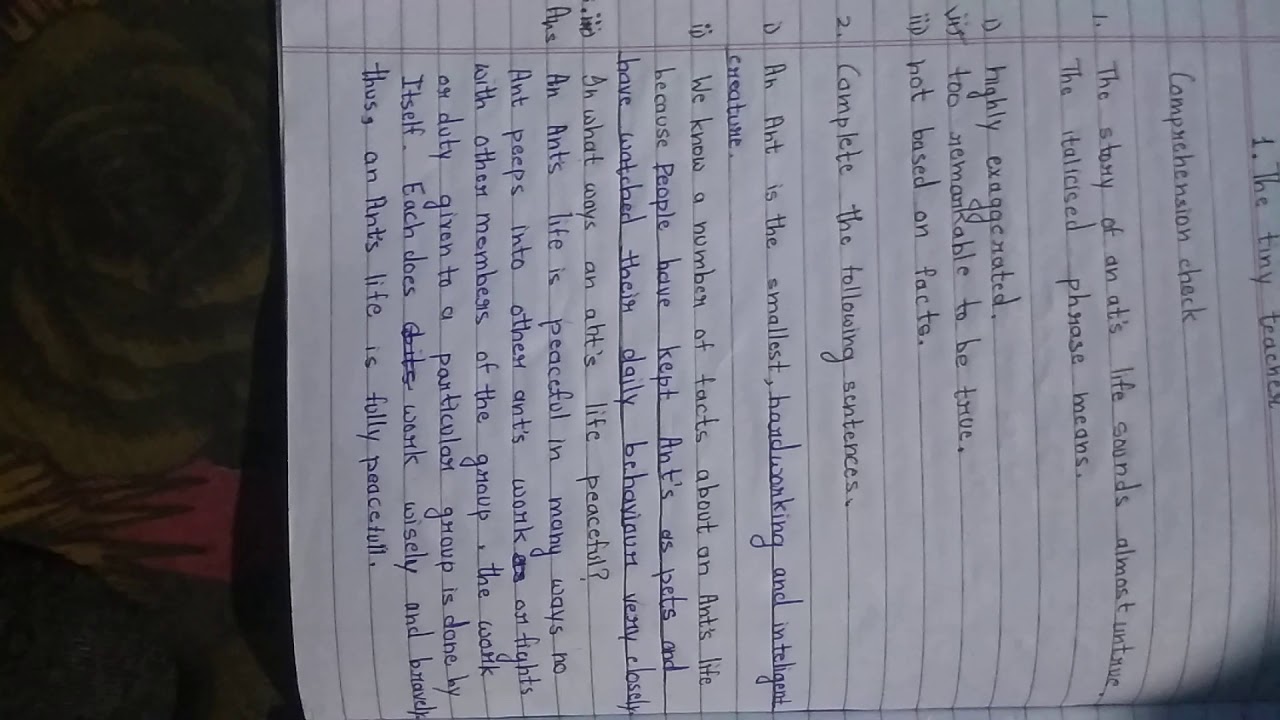 1. The tiny teacher
Comprehension check
1. The story of an at's life sounds almost untrue.
The italicised phrase means.
i) highly exaggerated.
ii) too remarkable to be true.
iii) not based on facts.
2. Complete the following sentences.
i) An Ant is the smallest, hardworking and inteligent
creature.
ii) We know a number of facts about an Ant's life
because People have kept Ant's as pets and
have watched their daily behaviour very closely
iii) In what ways an aht's life peaceful?
Ans An Ant's life is peaceful in many ways no
Ant peeps into other ant's work or fights
with other members of the group, the work
or duty given to a particular group is done by
Itself. Each does work wisely and bravely
thus, an Ant's life is fully peacefull.